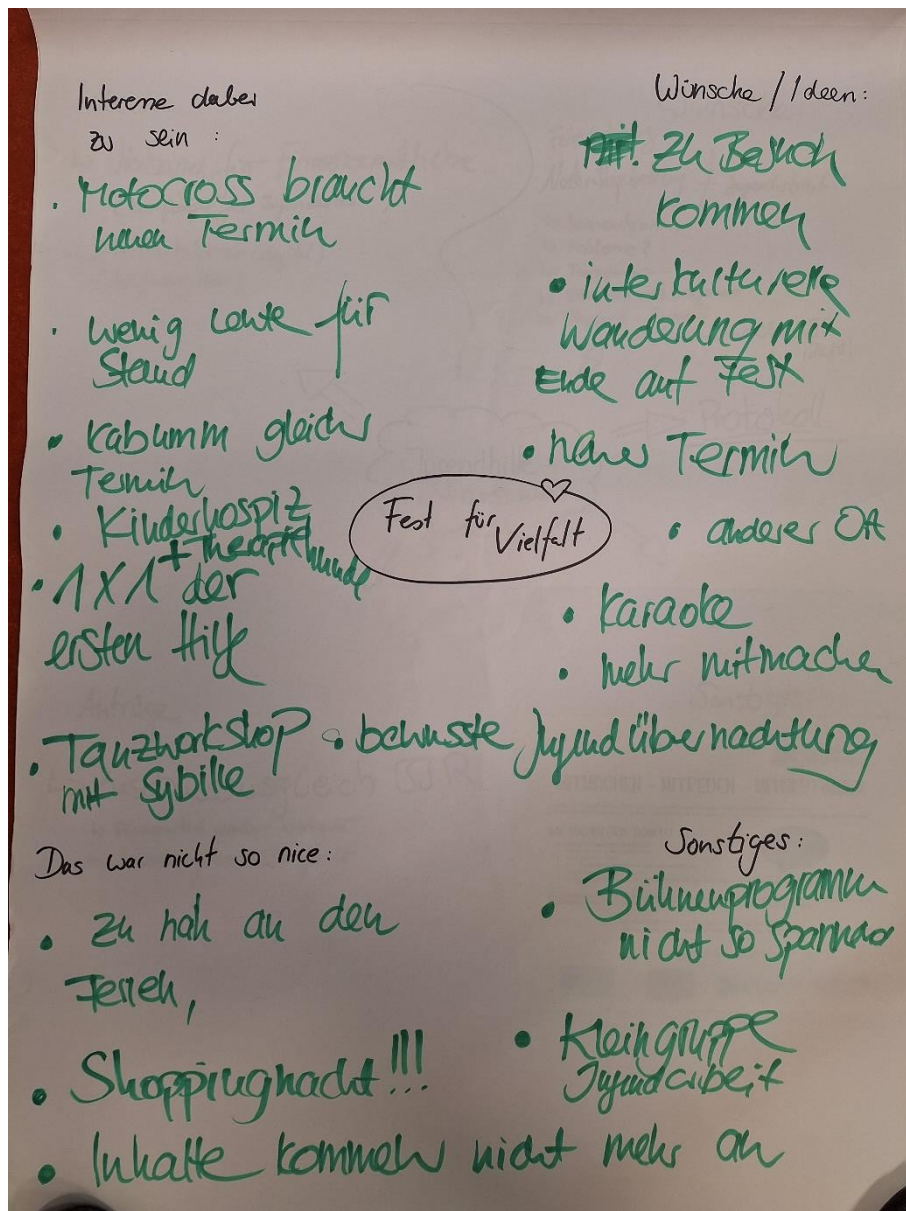 Interesse dabei
zu sein :
· Motocross braucht
neuen Termin
· wenig Leute für
Stand
• Kabumm gleicher
Termin
• Kinderhospiz
+ Therapiehunde
• 1x1 der
ersten Hilfe
• Tanzworkshop
mit Sybille
Fest für
Vielfalt
Wünsche / Ideen:
zu Besuch
kommen
• interkulturelle
Wanderung mit
Ende auf Fest
• neuer Termin
• anderer Ort
• Karaoke
• mehr mitmachen
• bewusste Jugendübernachtung
Das war nicht so nice:
• zu nah an den
Ferien,
• Shoppingnacht!!!
• Inhalte kommen nicht mehr an
Sonstiges:
• Bühnenprogramm
nicht so spannend
• Kleingruppe
Jugendarbeit